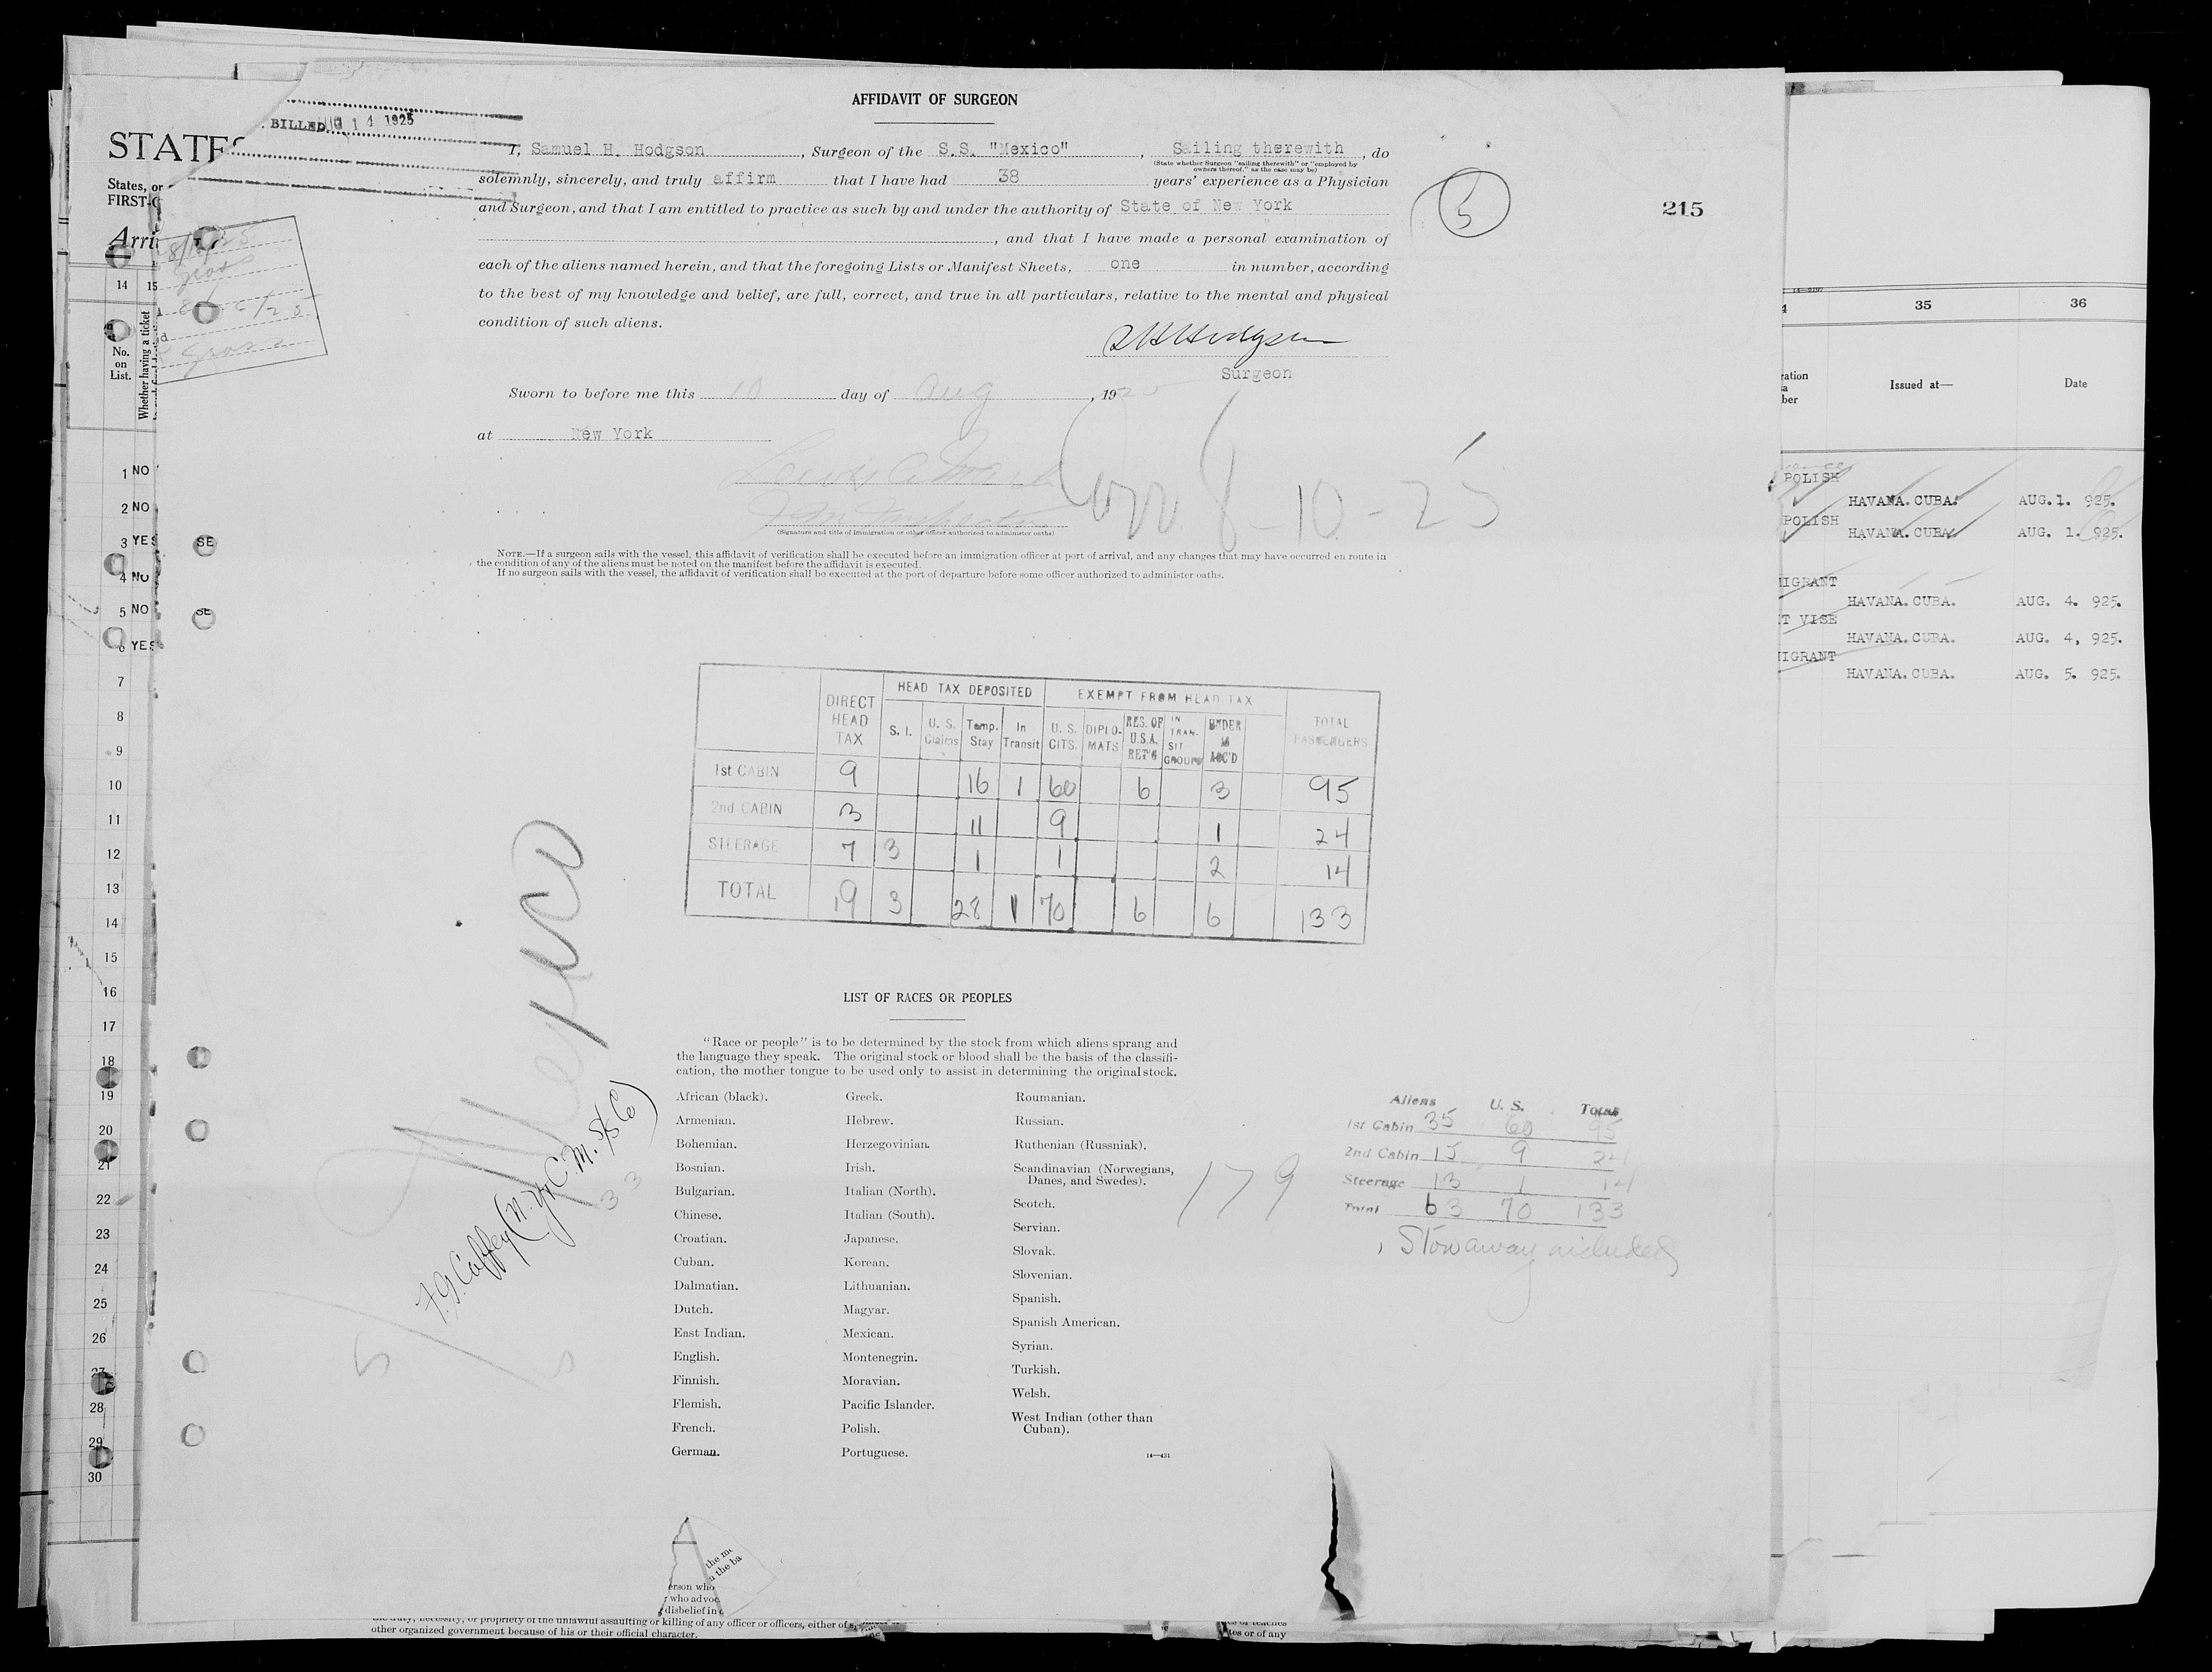 AFFIDAVIT OF SURGEON
BILLED AUG 14 1925
STATES
States, or
FIRST-C
Arri
I, Samuel H. Hodgson, Surgeon of the S.S. "Mexico", Sailing therewith, do
(State whether Surgeon "sailing therewith" or "employed by
owners thereof," as the case may be)
solemnly, sincerely, and truly affirm that I have had 38 years' experience as a Physician
and Surgeon, and that I am entitled to practice as such by and under the authority of State of New York
, and that I have made a personal examination of
each of the aliens named herein, and that the foregoing Lists or Manifest Sheets, one in number, according
to the best of my knowledge and belief, are full, correct, and true in all particulars, relative to the mental and physical
condition of such aliens.
S H Hodgson
Surgeon
5
215
Sworn to before me this 10 day of Aug, 1925
at New York
8-10-25
(Signature and title of immigration or other officer authorized to administer oaths)
NOTE.—If a surgeon sails with the vessel, this affidavit of verification shall be executed before an immigration officer at port of arrival, and any changes that may have occurred en route in
the condition of any of the aliens must be noted on the manifest before the affidavit is executed.
If no surgeon sails with the vessel, the affidavit of verification shall be executed at the port of departure before some officer authorized to administer oaths.
14 15
No.
on
List.
Whether having a ticket
1 NO
2 NO
3 YES
4 NO
5 NO
6 YES
7
8
9
10
11
12
13
14
15
16
17
18
19
20
21
22
23
24
25
26
27
28
29
30
35 36
Issued at— Date
POLISH
HAVANA. CUBA. AUG.1. 925.
POLISH
HAVANA. CUBA. AUG. 1. 925.
MIGRANT
HAVANA. CUBA. AUG. 4. 925.
T VISE
HAVANA. CUBA. AUG. 4, 925.
MIGRANT
HAVANA. CUBA. AUG. 5. 925.
DIRECT HEAD TAX HEAD TAX DEPOSITED EXEMPT FROM HEAD TAX TOTAL PASSENGERS
S. I. U. S. Claims Temp. Stay In Transit U. S. CITS. DIPLO-MATS RES. OF U.S.A. RET'G IN TRAN-SIT GROUPS UNDER 16 ACC'D
1st CABIN 9 16 1 60 6 3 95
2nd CABIN 3 11 9 1 24
STEERAGE 7 3 1 1 2 14
TOTAL 19 3 28 1 70 6 6 133
Mexico
LIST OF RACES OR PEOPLES
"Race or people" is to be determined by the stock from which aliens sprang and
the language they speak. The original stock or blood shall be the basis of the classifi-
cation, the mother tongue to be used only to assist in determining the original stock.
African (black).
Armenian.
Bohemian.
Bosnian.
Bulgarian.
Chinese.
Croatian.
Cuban.
Dalmatian.
Dutch.
East Indian.
English.
Finnish.
Flemish.
French.
German.
Greek.
Hebrew.
Herzegovinian.
Irish.
Italian (North).
Italian (South).
Japanese.
Korean.
Lithuanian.
Magyar.
Mexican.
Montenegrin.
Moravian.
Pacific Islander.
Polish.
Portuguese.
Roumanian.
Russian.
Ruthenian (Russniak).
Scandinavian (Norwegians,
Danes, and Swedes).
Scotch.
Servian.
Slovak.
Slovenian.
Spanish.
Spanish American.
Syrian.
Turkish.
Welsh.
West Indian (other than
Cuban).
14—431
179
Aliens U. S. Total
1st Cabin 35 60 95
2nd Cabin 15 9 24
Steerage 13 1 14
Total 63 70 133
1 Stowaway included
33
erson who
who advoc
disbelief in
the duty, necessity, or propriety of the unlawful assaulting or killing of any officer or officers, either of
other organized government because of his or their official character.
tes or of any